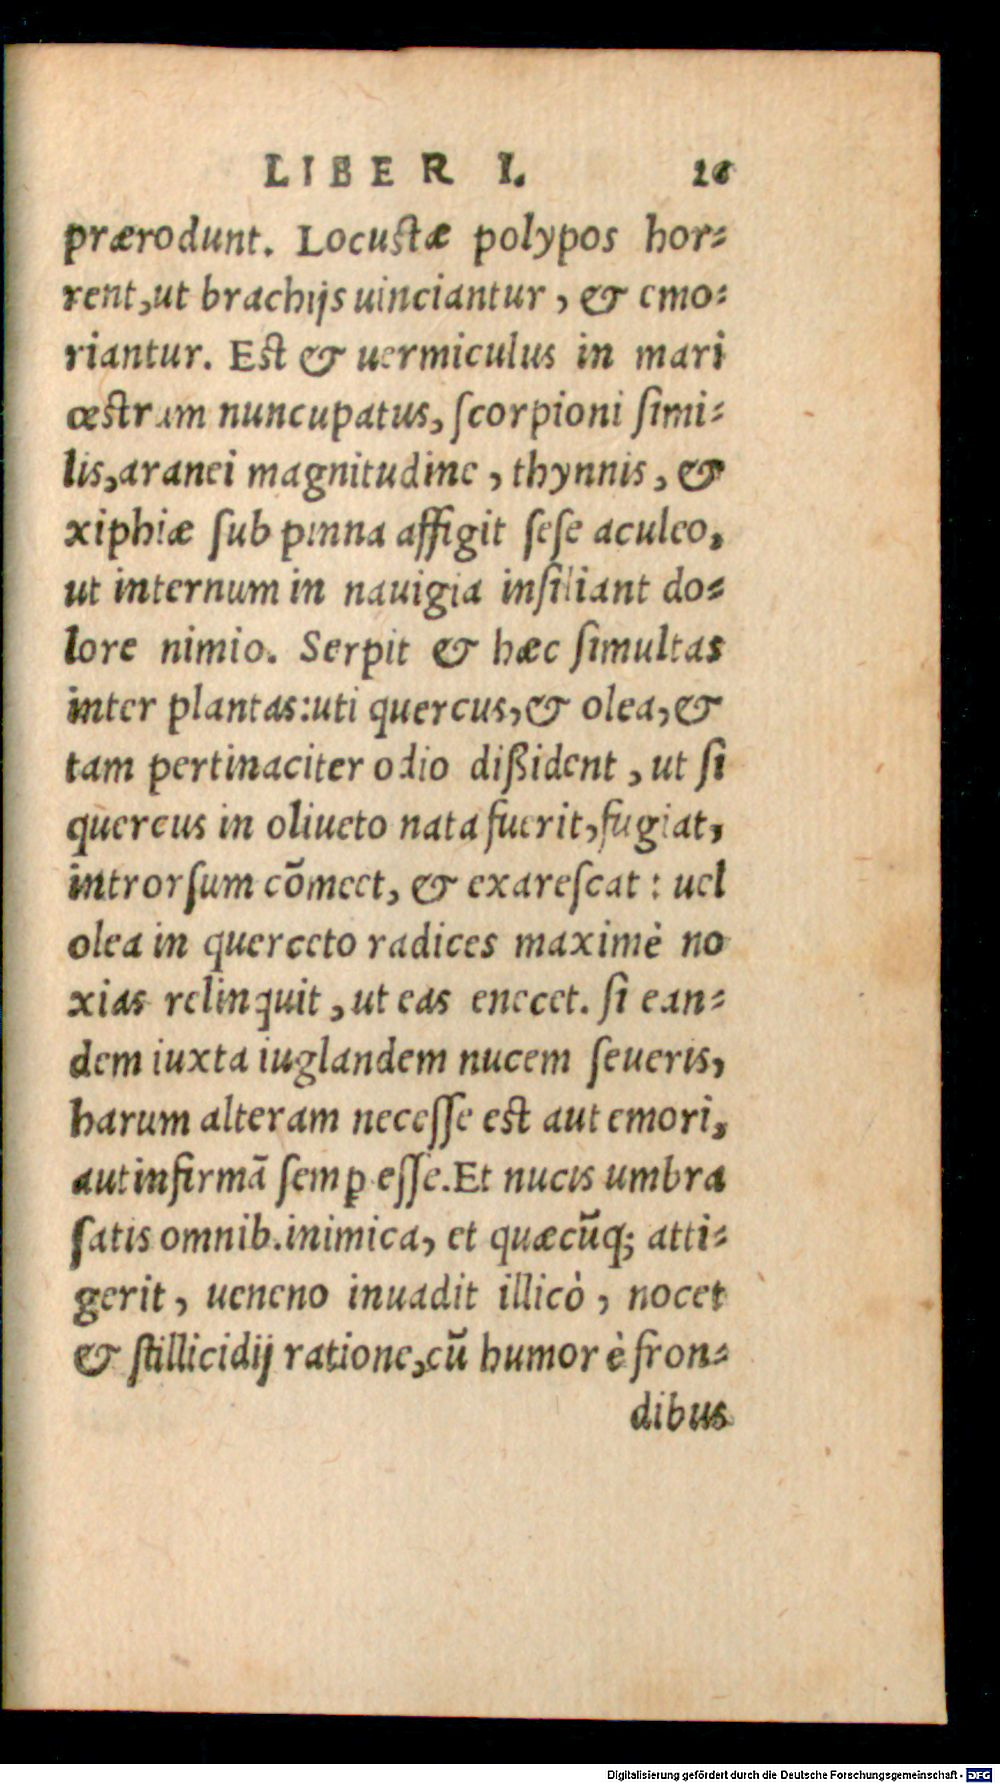 LIBER I. 26
prærodunt. Locustæ polypos hor-
rent, ut brachijs uinciantur, & emo-
riantur. Est & uermiculus in mari
œstrum nuncupatus, ſcorpioni ſimi-
lis, aranei magnitudine, thynnis, &
xiphiæ ſub pinna affigit ſeſe aculeo,
ut internum in nauigia inſiliant do-
lore nimio. Serpit & hæc ſimultas
inter plantas: uti quercus, & olea, &
tam pertinaciter odio dißident, ut ſi
quercus in oliueto nata fuerit, fugiat,
introrſum cõmeet, & exareſcat: uel
olea in querceto radices maximè no
xias relinquit, ut eas enecet. ſi ean-
dem iuxta iuglandem nucem ſeueris,
harum alteram neceſſe est aut emori,
aut infirmã ſemꝑ eſſe. Et nucis umbra
ſatis omnib. inimica, et quæcũq; atti-
gerit, ueneno inuadit illicò, nocet
& ſtillicidij ratione, cũ humor è fron-
dibus
Digitalisierung gefördert durch die Deutsche Forschungsgemeinschaft - DFG